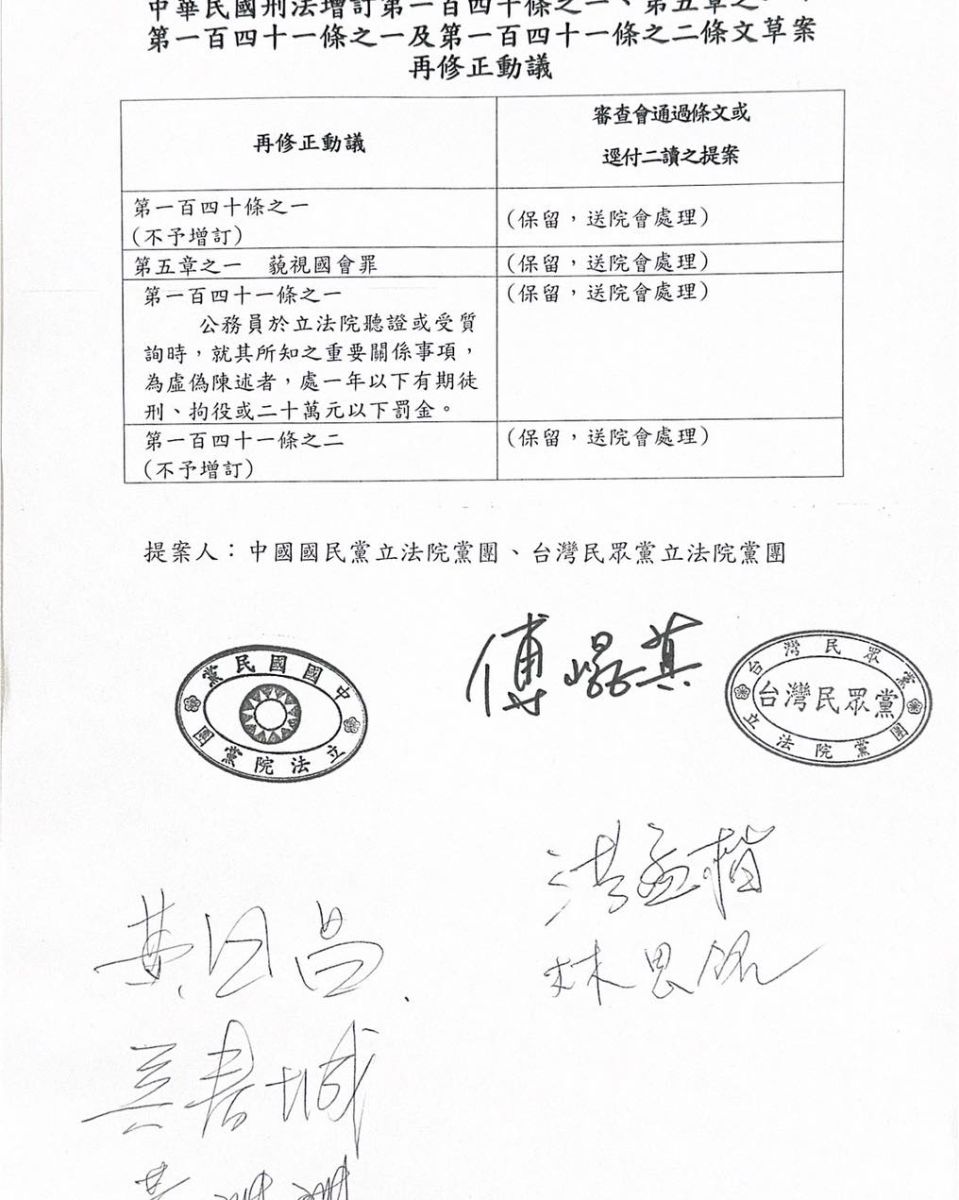 中華民國刑法增訂第一百四十條之一、第五章之一、
第一百四十一條之一及第一百四十一條之二條文草案
再修正動議
再修正動議
審查會通過條文或
逕付二讀之提案
第一百四十條之一
(不予增訂)
(保留,送院會處理)
第五章之一 藐視國會罪
(保留,送院會處理)
第一百四十一條之一
公務員於立法院聽證或受質
詢時,就其所知之重要關係事項,
為虛偽陳述者,處一年以下有期徒
刑、拘役或二十萬元以下罰金。
(保留,送院會處理)
第一百四十一條之二
(不予增訂)
(保留,送院會處理)
提案人:中國國民黨立法院黨團、台灣民眾黨立法院黨團
中國國民黨
立法院黨團
傅崐萁
台灣民眾黨
台灣民眾黨
立法院黨團
洪孟楷
黃國昌
林思銘
吳春城
黃珊珊